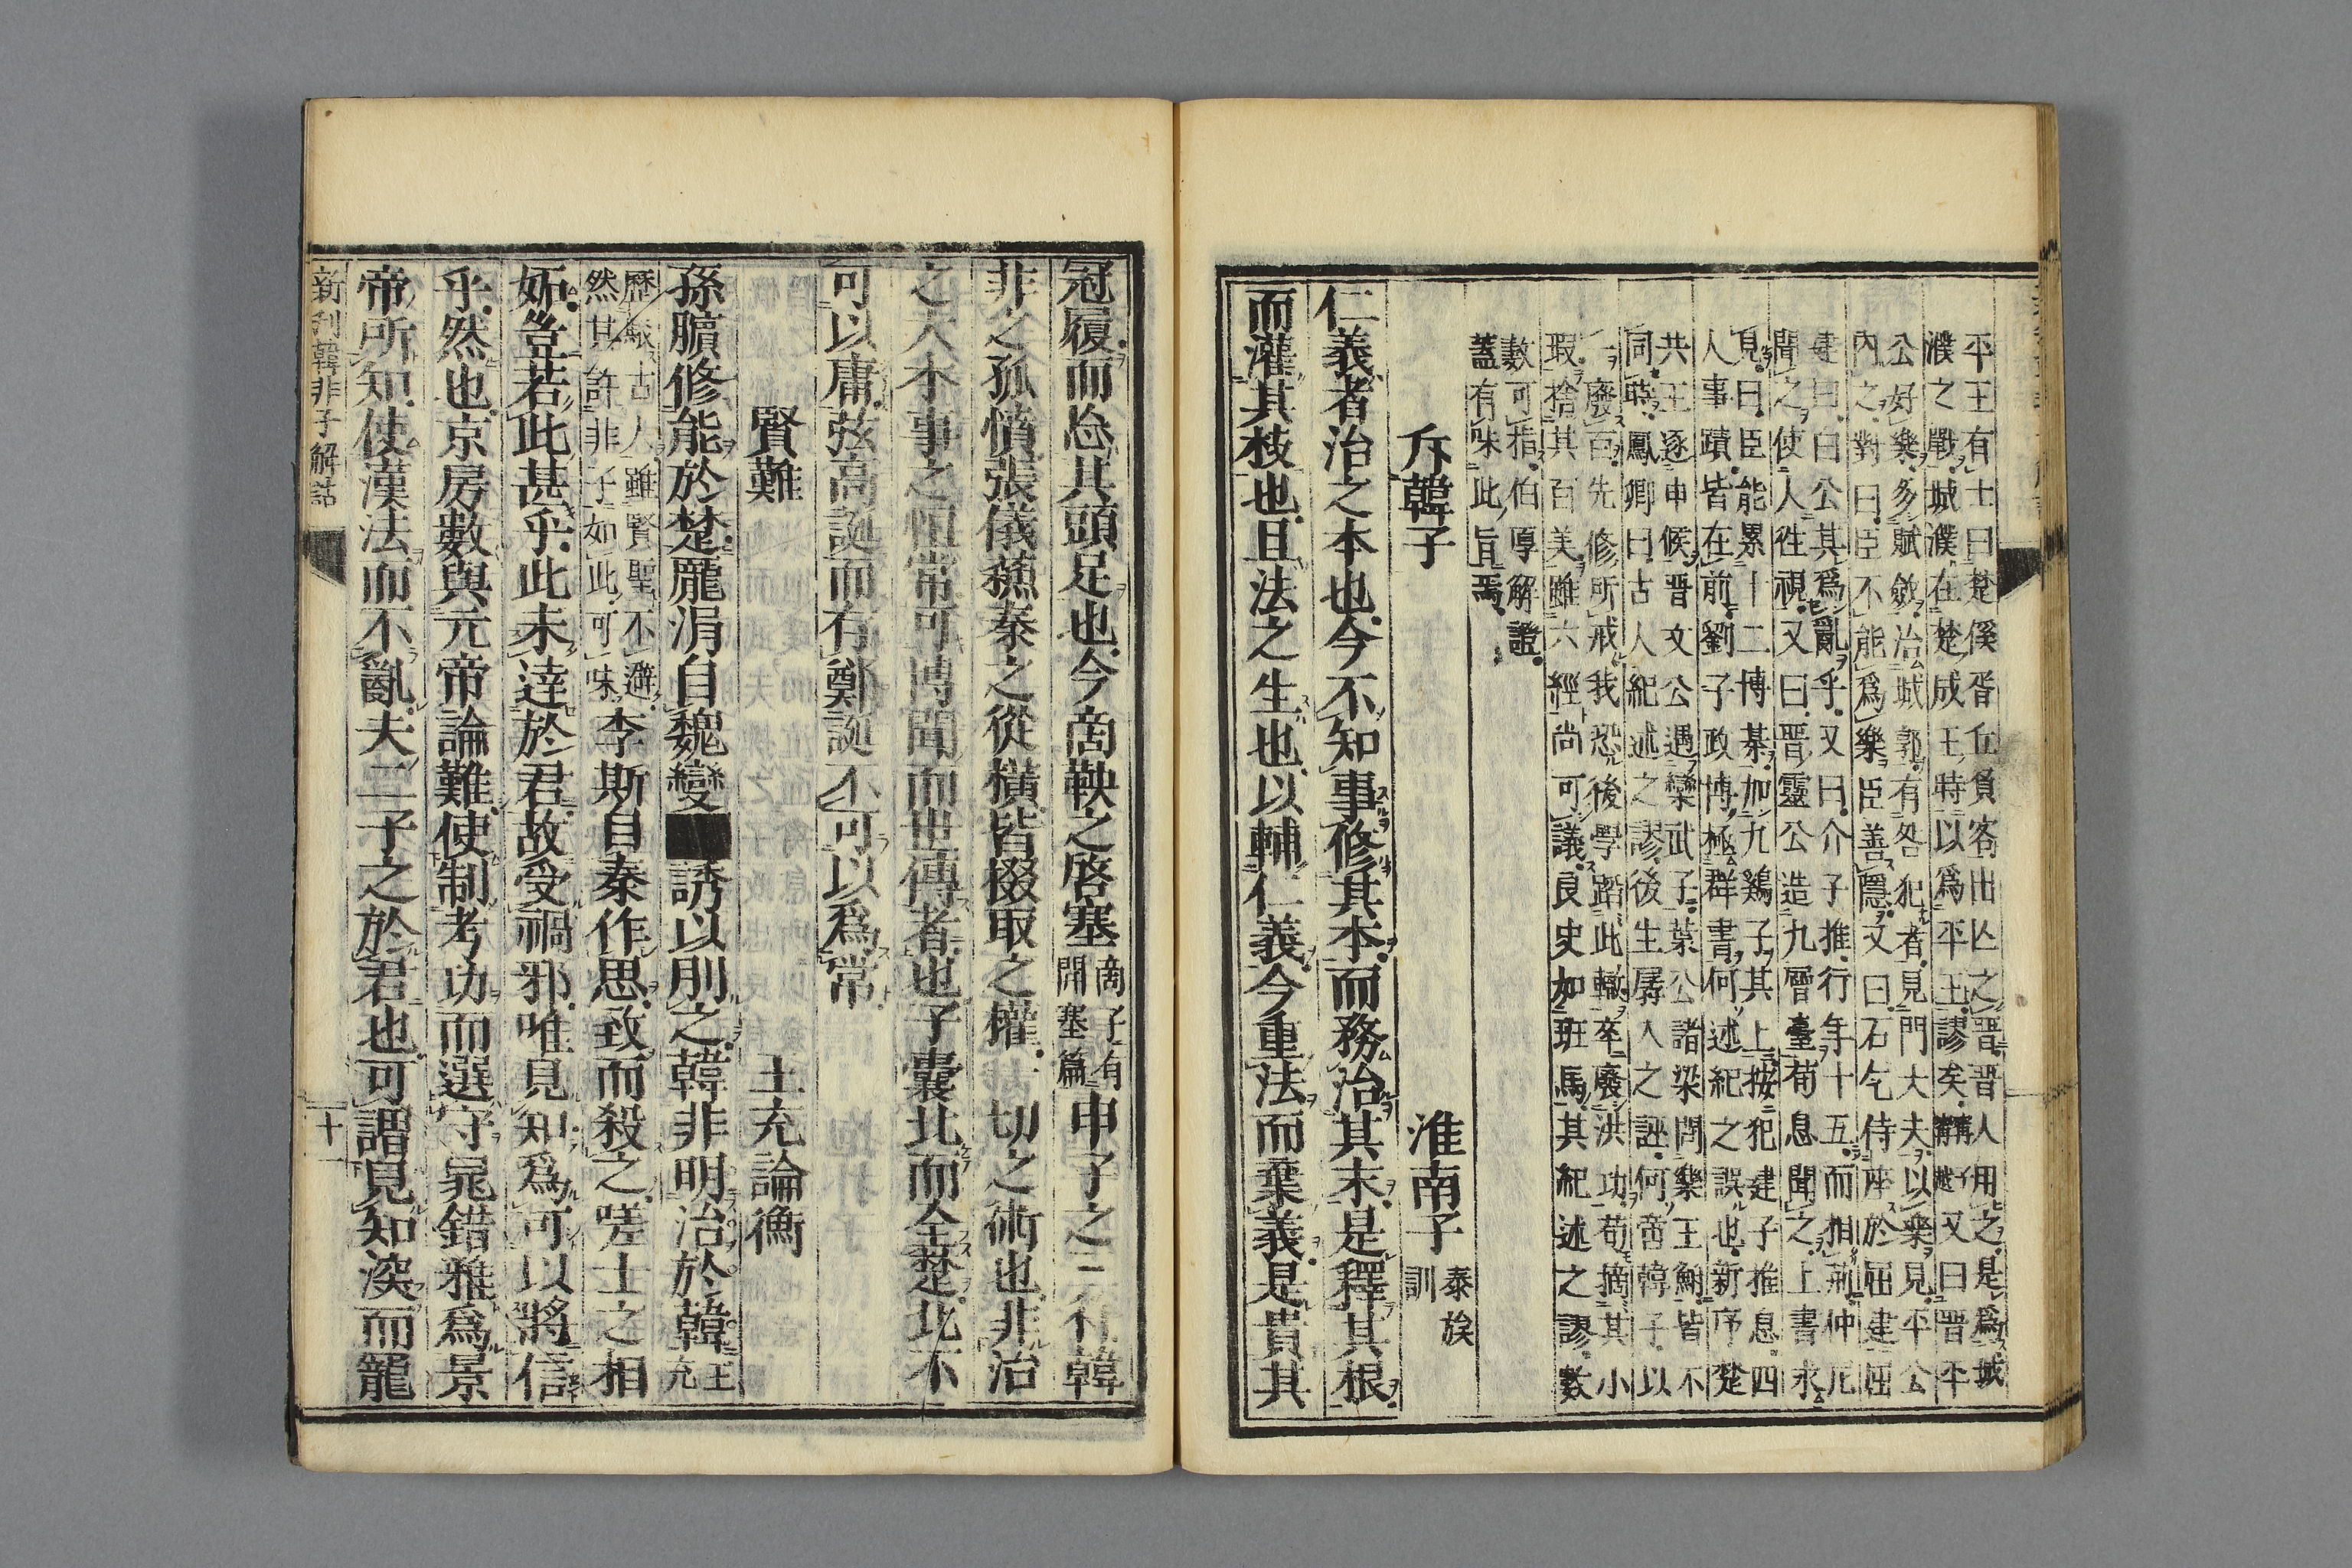 平王有士曰楚傒胥丘負客出亾之晋晋人用之是爲城
濮之戰城濮在楚成王時以爲平王謬矣又曰晋平
公好樂多賦歛治城郭有咎犯者見門大夫以樂見平公
内之對曰臣不能爲樂臣善隱又曰石乞侍座於屈建屈
建曰白公其爲亂乎又曰介子推行年十五而相荊仲尼
聞之使人徃視又曰晋靈公造九層臺荀息聞之上書求
見曰臣能累十二博棊加九鷄子其上按犯建子推息四
人事蹟皆在前劉子政博極群書何述紀之誤也新序楚
共王逐申候晋文公遇欒武子葉公諸梁問樂王鮒皆不
同時鳳卿曰古人紀述之謬後生孱人之誣何啻韓子以
一廢百先修所戒我恐後學蹈此轍卒廢洪功苟摘其小
瑕捨其百美雖六經尚可議良史如班馬其紀述之謬數
數可指伯厚解證
蓋有味此旨焉
斥韓子 淮南子 泰族訓
仁義者治之本也今不知事修其本而務治其末是釋其根
而灌其枝也且法之生也以輔仁義今重法而棄義是貴其
冠履而忘其頭足也今商鞅之啓塞 商子有開塞篇 申子之三符韓
非之孤憤張儀蘓秦之從橫皆掇取之權一切之術也非治
之大本事之恒常可博聞而世傳者也子囊北而全楚北不
可以庸弦高誕而存鄭誕不可以爲常
賢難 王充論衡
孫臏修能於楚龐涓自魏變■誘以刖之韓非明治於韓 王充
歷 古人雖賢聖不避
然其許非子如此可味 李斯自秦作思致而殺之嗟士之相
妬豈若此甚乎此未達於君故受禍邪唯見知爲可以將信
乎然也京房數與元帝論難使制考功而選守晁錯雅爲景
帝所知使漢法而不亂夫二子之於君也可謂見知深而寵
新刻韓非子解詁 十一